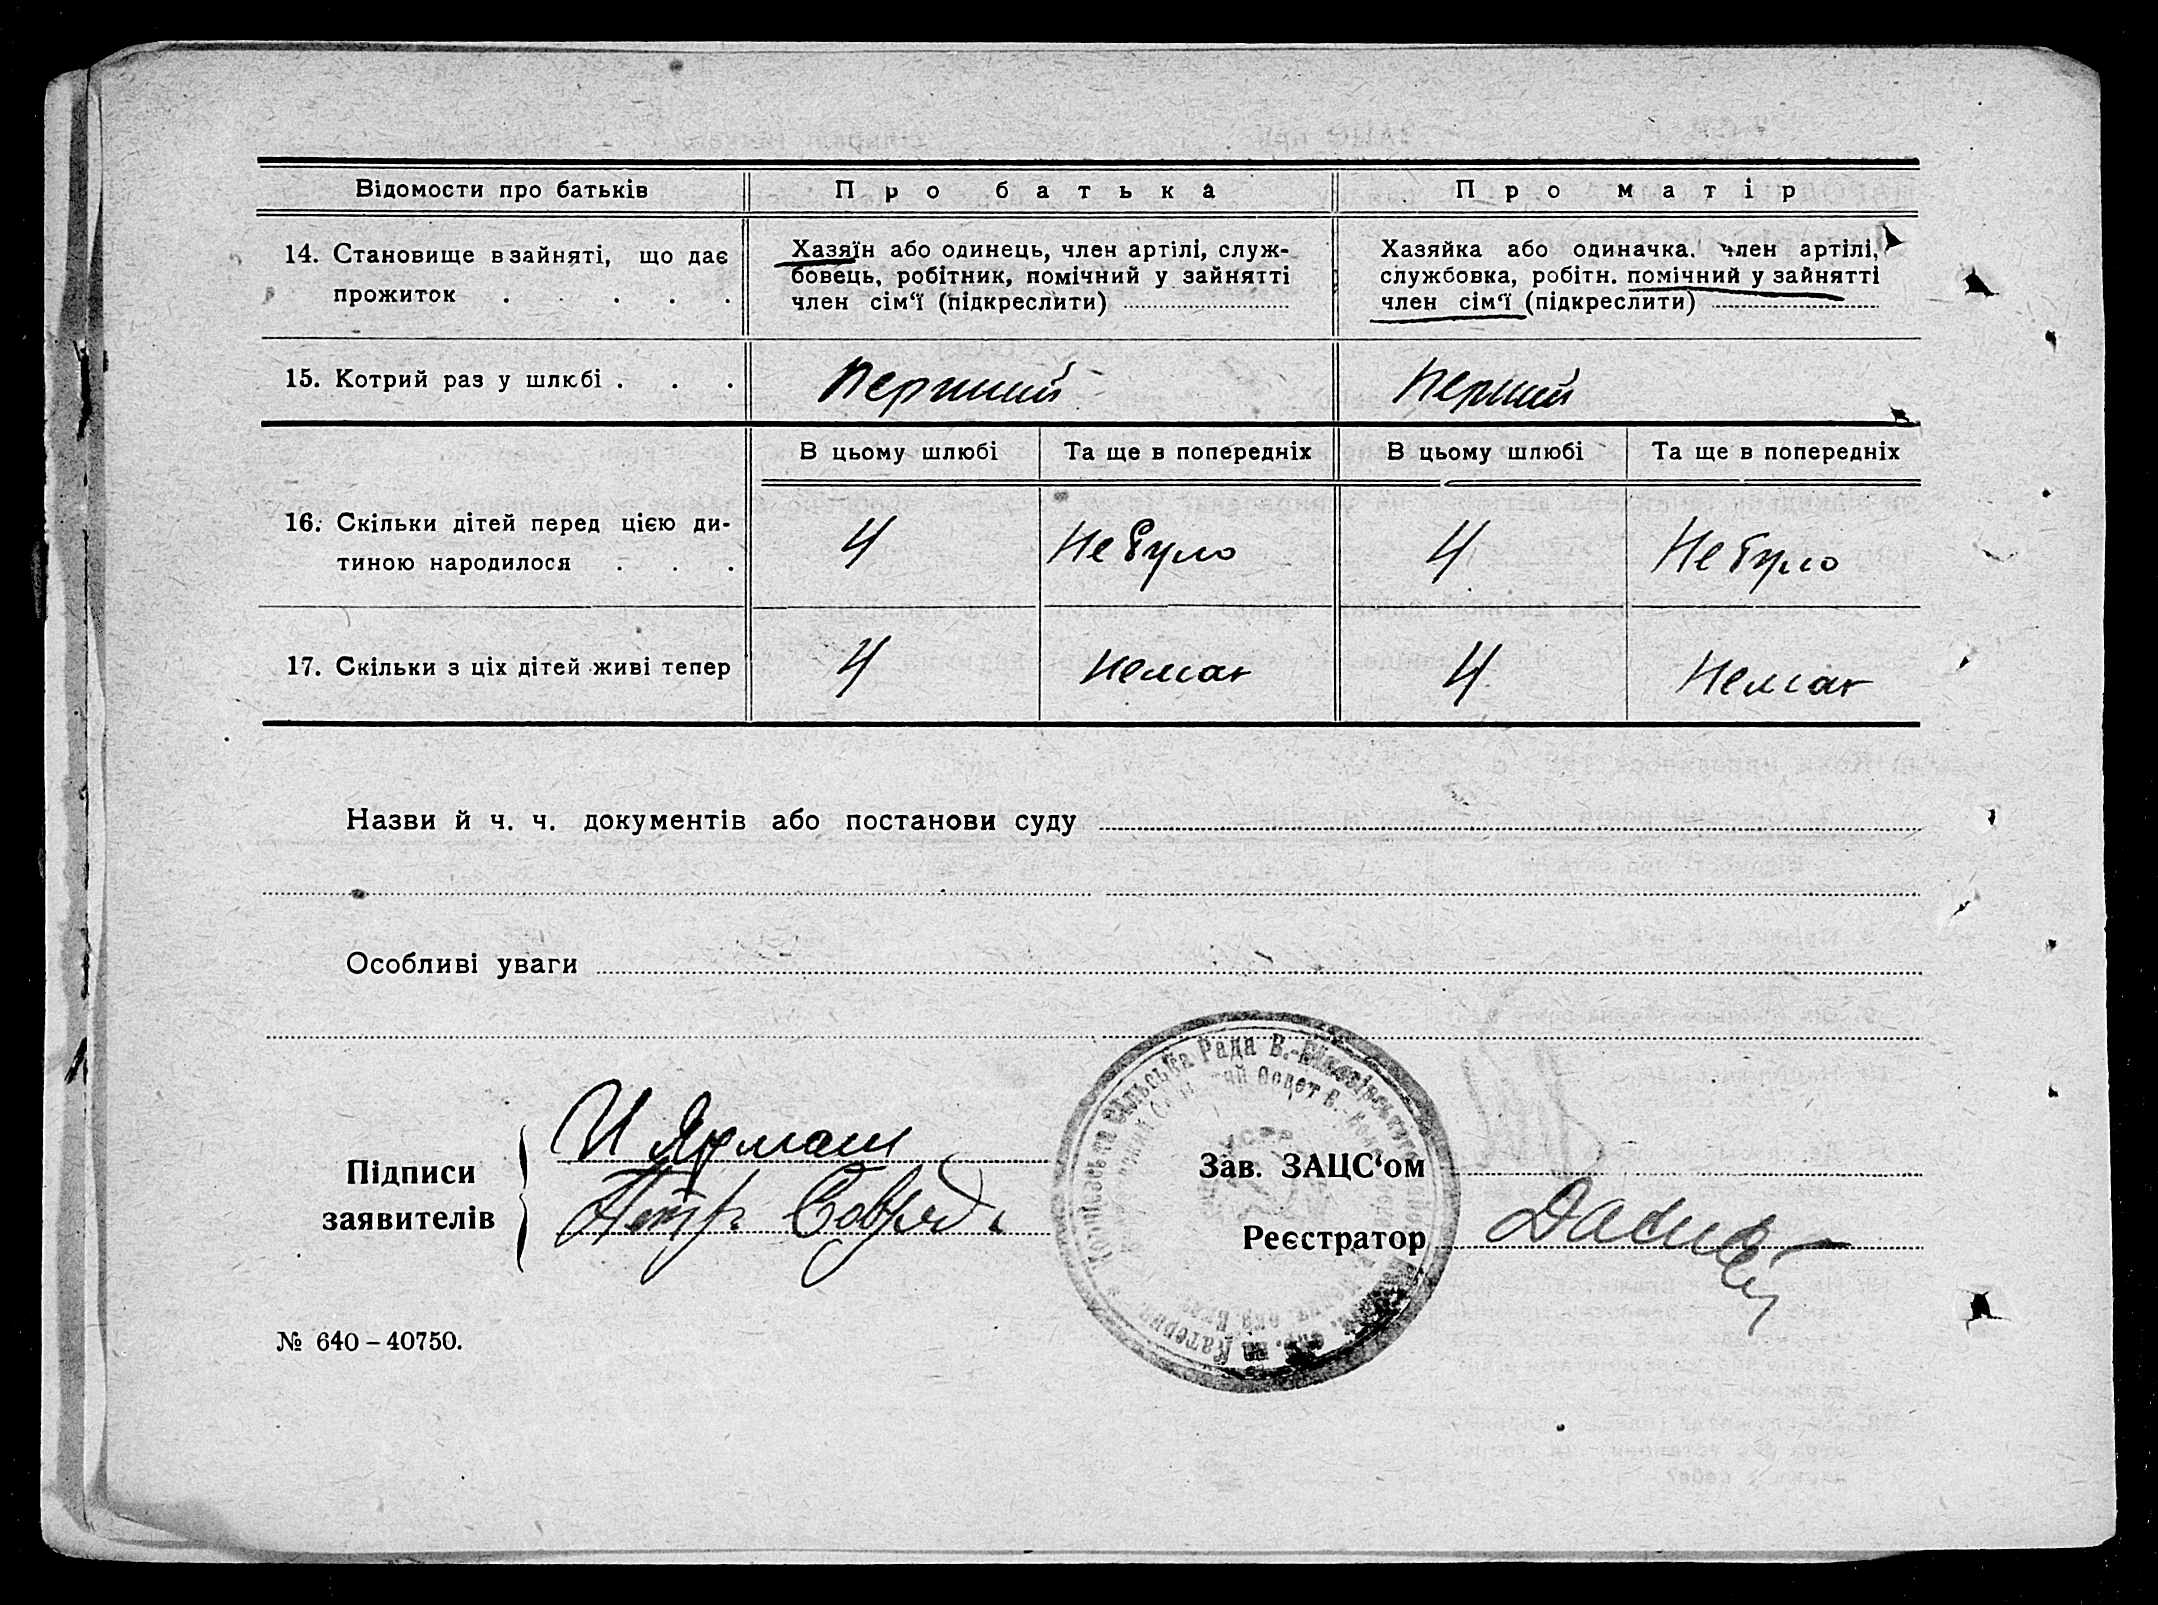 Відомости про батьків
Про батька
Про матір
14. Становище в зайняті, що дає
прожиток . . . . .
Хазяїн або одинець, член артілі, служ-
бовець, робітник, помічний у зайнятті
член сім'ї (підкреслити)
Хазяйка або одиначка, член артілі,
службовка, робітн. помічний у зайнятті
член сім'ї (підкреслити)
15. Котрий раз у шлюбі . . .
Перший
Перший
В цьому шлюбі
Та ще в попередніх
В цьому шлюбі
Та ще в попередніх
16. Скільки дітей перед цією ди-
тиною народилося . . .
4
Не було
4
Не було
17. Скільки з ціх дітей живі тепер
4
Немає
4
Немає
Назви й ч. ч. документів або постанови суду
Особливі уваги
Підписи
заявителів
И Ярмаш
Петр
Зав. ЗАЦС'ом
Реєстратор
Сільська Рада В.-
№ 640–40750.